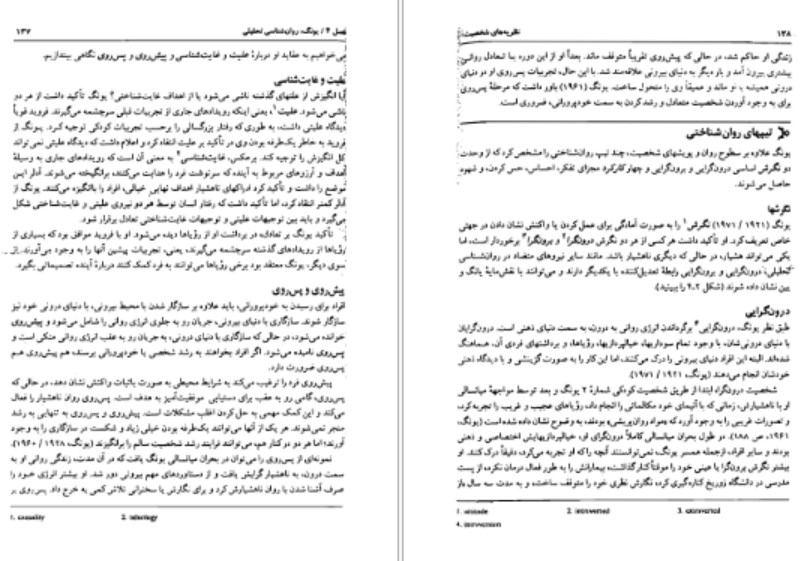 فصل ۴ / یونگ، روان‌شناسی تحلیلی ۱۳۷
می‌خواهیم به عقاید او دربارهٔ علیت و غایت‌شناسی و پیش‌روی و پس‌روی نگاهی بیندازیم.
علیت و غایت‌شناسی
آیا انگیزش از علتهای گذشته ناشی می‌شود یا از اهداف غایت‌شناختی؟ یونگ تأکید داشت از هر دو
ناشی می‌شود. علیت۱، یعنی اینکه رویدادهای جاری از تجربیات قبلی سرچشمه می‌گیرند. فروید قویاً
دیدگاه علیتی داشت، به طوری که رفتار بزرگسالی را برحسب تجربیات کودکی توجیه کرد. یونگ از
فروید به خاطر یک‌طرفه بودن وی در تأکید بر علیت انتقاد کرد و اعلام داشت که دیدگاه علیتی نمی‌تواند
کل انگیزش را توجیه کند. برعکس، غایت‌شناسی۲ به معنی آن است که رویدادهای جاری به وسیلهٔ
اهداف و آرزوهای مربوط به آینده که سرنوشت فرد را هدایت می‌کنند، برانگیخته می‌شوند. آدلر این
موضع را داشت و تأکید کرد ادراکهای ناهشیار اهداف نهایی خیالی، افراد را باانگیزه می‌کنند. یونگ از
آدلر کمتر انتقاد کرد، اما تأکید داشت که رفتار انسان توسط هر دو نیروی علیتی و غایت‌شناختی شکل
می‌گیرد و باید بین توجیهات علیتی و توجیهات غایت‌شناختی تعادل برقرار شود.
تأکید یونگ بر تعادل، در برداشت او از رؤیاها دیده می‌شود. او با فروید موافق بود که بسیاری از
رؤیاها از رویدادهای گذشته سرچشمه می‌گیرند، یعنی، تجربیات پیشین آنها را به وجود می‌آورند. از
سوی دیگر، یونگ معتقد بود برخی رؤیاها می‌توانند به فرد کمک کنند دربارهٔ آینده تصمیماتی بگیرد.
پیش‌روی و پس‌روی
افراد برای رسیدن به خودپرورانی، باید علاوه بر سازگار شدن با محیط بیرونی، با دنیای درونی خود نیز
سازگار شوند. سازگاری با دنیای بیرونی، جریان رو به جلوی انرژی روانی را شامل می‌شود و پیش‌روی
خوانده می‌شود، در حالی که سازگاری با دنیای درونی، به جریان رو به عقب انرژی روانی متکی است و
پس‌روی نامیده می‌شود. اگر افراد بخواهند به رشد شخصی یا خودپرورانی برسند، هم پیش‌روی هم
پس‌روی ضرورت دارد.
پیش‌روی فرد را ترغیب می‌کند به شرایط محیطی به صورت باثبات واکنش نشان دهد، در حالی که
پس‌روی، گامی رو به عقب برای دستیابی موفقیت‌آمیز به هدف است. پس‌روی روان ناهشیار را فعال
می‌کند و این کمک مهمی به حل کردن اغلب مشکلات است. پیش‌روی و پس‌روی به تنهایی به رشد
منجر نمی‌شوند. هر یک از آنها می‌توانند یک‌طرفه بودن خیلی زیاد و شکست در سازگاری را به وجود
آورند؛ اما هر دو در کنار هم، می‌توانند فرایند رشد شخصیت سالم را برانگیزند (یونگ، ۱۹۲۸ / ۱۹۶۰).
نمونه‌ای از پس‌روی را می‌توان در بحران میانسالی یونگ یافت که در آن مدت، زندگی روانی او به
سمت درون، به ناهشیار گرایش یافت و از دستاوردهای مهم بیرونی دور شد. او بیشتر انرژی خود را
صرف آشنا شدن با روان ناهشیارش کرد و برای نگارش یا سخنرانی تلاش کمی به خرج داد. پس‌روی بر
1. causality 2. teleology
۱۳۸ نظریه‌های شخصیت
زندگی او حاکم شد، در حالی که پیش‌روی تقریباً متوقف ماند. بعداً او از این دوره با تعادل روانی
بیشتری بیرون آمد و بار دیگر به دنیای بیرونی علاقه‌مند شد. با این حال، تجربیات پس‌روی او در دنیای
درونی همیشه با او ماند و عمیقاً وی را متحول ساخت. یونگ (۱۹۶۱) باور داشت که مرحلهٔ پس‌روی
برای به وجود آوردن شخصیت متعادل و رشد کردن به سمت خودپرورانی، ضروری است.
تیپهای روان‌شناختی
یونگ علاوه بر سطوح روان و پویشهای شخصیت، چند تیپ روان‌شناختی را مشخص کرد که از وحدت
دو نگرش اساسی درون‌گرایی و برون‌گرایی و چهار کارکرد مجزای تفکر، احساس، حس کردن، و شهود
حاصل می‌شوند.
نگرشها
یونگ (۱۹۲۱ / ۱۹۷۱) نگرش۱ را به صورت آمادگی برای عمل کردن یا واکنش نشان دادن در جهتی
خاص تعریف کرد. او تأکید داشت هر کسی از هر دو نگرش درون‌گرا۲ و برون‌گرا۳ برخوردار است، اما
یکی می‌تواند هشیار، در حالی که دیگری ناهشیار باشد. مانند سایر نیروهای متضاد در روان‌شناسی
تحلیلی، درون‌گرایی و برون‌گرایی رابطهٔ تعدیل‌کننده با یکدیگر دارند و می‌توانند با نقش‌مایهٔ یانگ و
یین نشان داده شوند (شکل ۴.۲ را ببینید).
درون‌گرایی
طبق نظر یونگ، درون‌گرایی۴ برگرداندن انرژی روانی به درون، به سمت دنیای ذهنی است. درون‌گرایان
با دنیای درونی‌شان، با وجود تمام سوداریها، خیالپردازیها، رؤیاها، و برداشتهای فردی آن، هماهنگ
شده‌اند. البته این افراد دنیای بیرونی را درک می‌کنند، اما این کار را به صورت گزینشی و با دیدگاه ذهنی
خودشان انجام می‌دهند (یونگ، ۱۹۲۱ / ۱۹۷۱).
شخصیت درون‌گراء ابتدا از طریق شخصیت کودکی شمارهٔ ۲ یونگ و بعد توسط مواجههٔ میانسالی
او با ناهشیارش، زمانی که با آنیمای خود مکالماتی را انجام داد، رؤیاهای عجیب و غریب را تجربه کرد،
و تصورات غریبی را به وجود آورد که «مواد روان‌پریشی» بودند، به وضوح نشان داده شده است (یونگ،
۱۹۶۱، ص ۱۸۸). در طول بحران میانسالی کاملاً درون‌گرای او، خیالپردازیهایش اختصاصی و ذهنی
بودند و سایر افراد، ازجمله همسر یونگ، نمی‌توانستند آنچه را که او تجربه می‌کرد، دقیقاً درک کنند. او
بیشتر نگرش برون‌گرا یا عینی خود را موقتاً کنار گذاشت، بیمارانش را به طور فعال درمان نکرد، از پست
مدرسی در دانشگاه زوریخ کناره‌گیری کرد، نگارش نظری خود را متوقف ساخت، و به مدت سه سال باز
1. attitude 2. introverted 3. extraverted
4. introversion